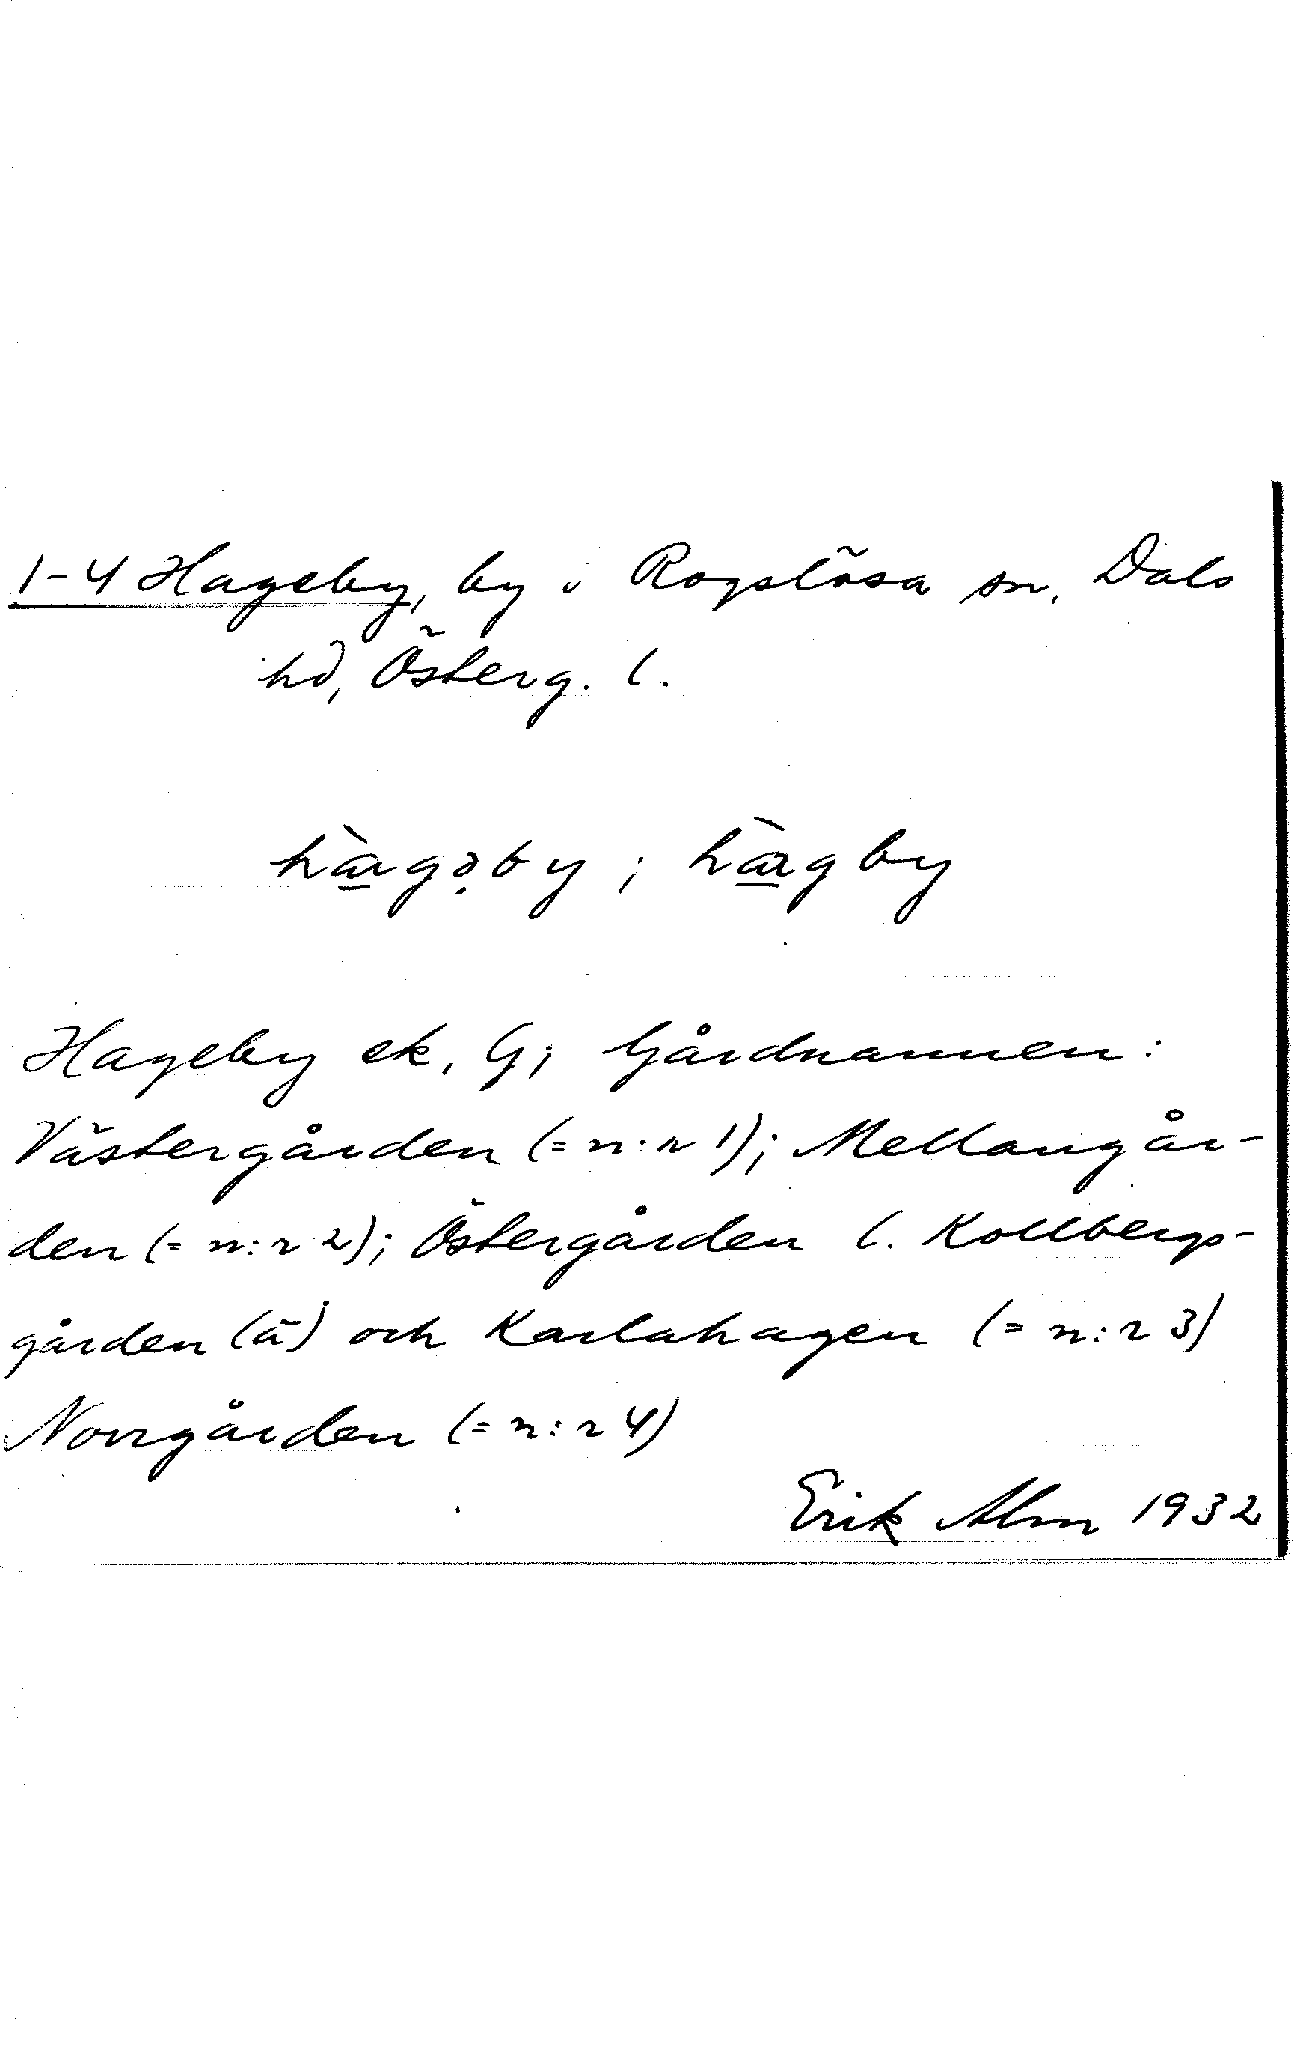 1-4 Hageby, by i Rogslösa sn, Dals
hd, Österg. l.
hàgəby ; hàgby
Hageby ek, G; Gårdnamnen:
Västergården (= n:r 1); Mellangår-
den (= n:r 2); Östergården l. Kollbergs-
gården (ä) och Karlahagen (= n:r 3)
Norrgården (= n:r 4)
Erik Alm 1932